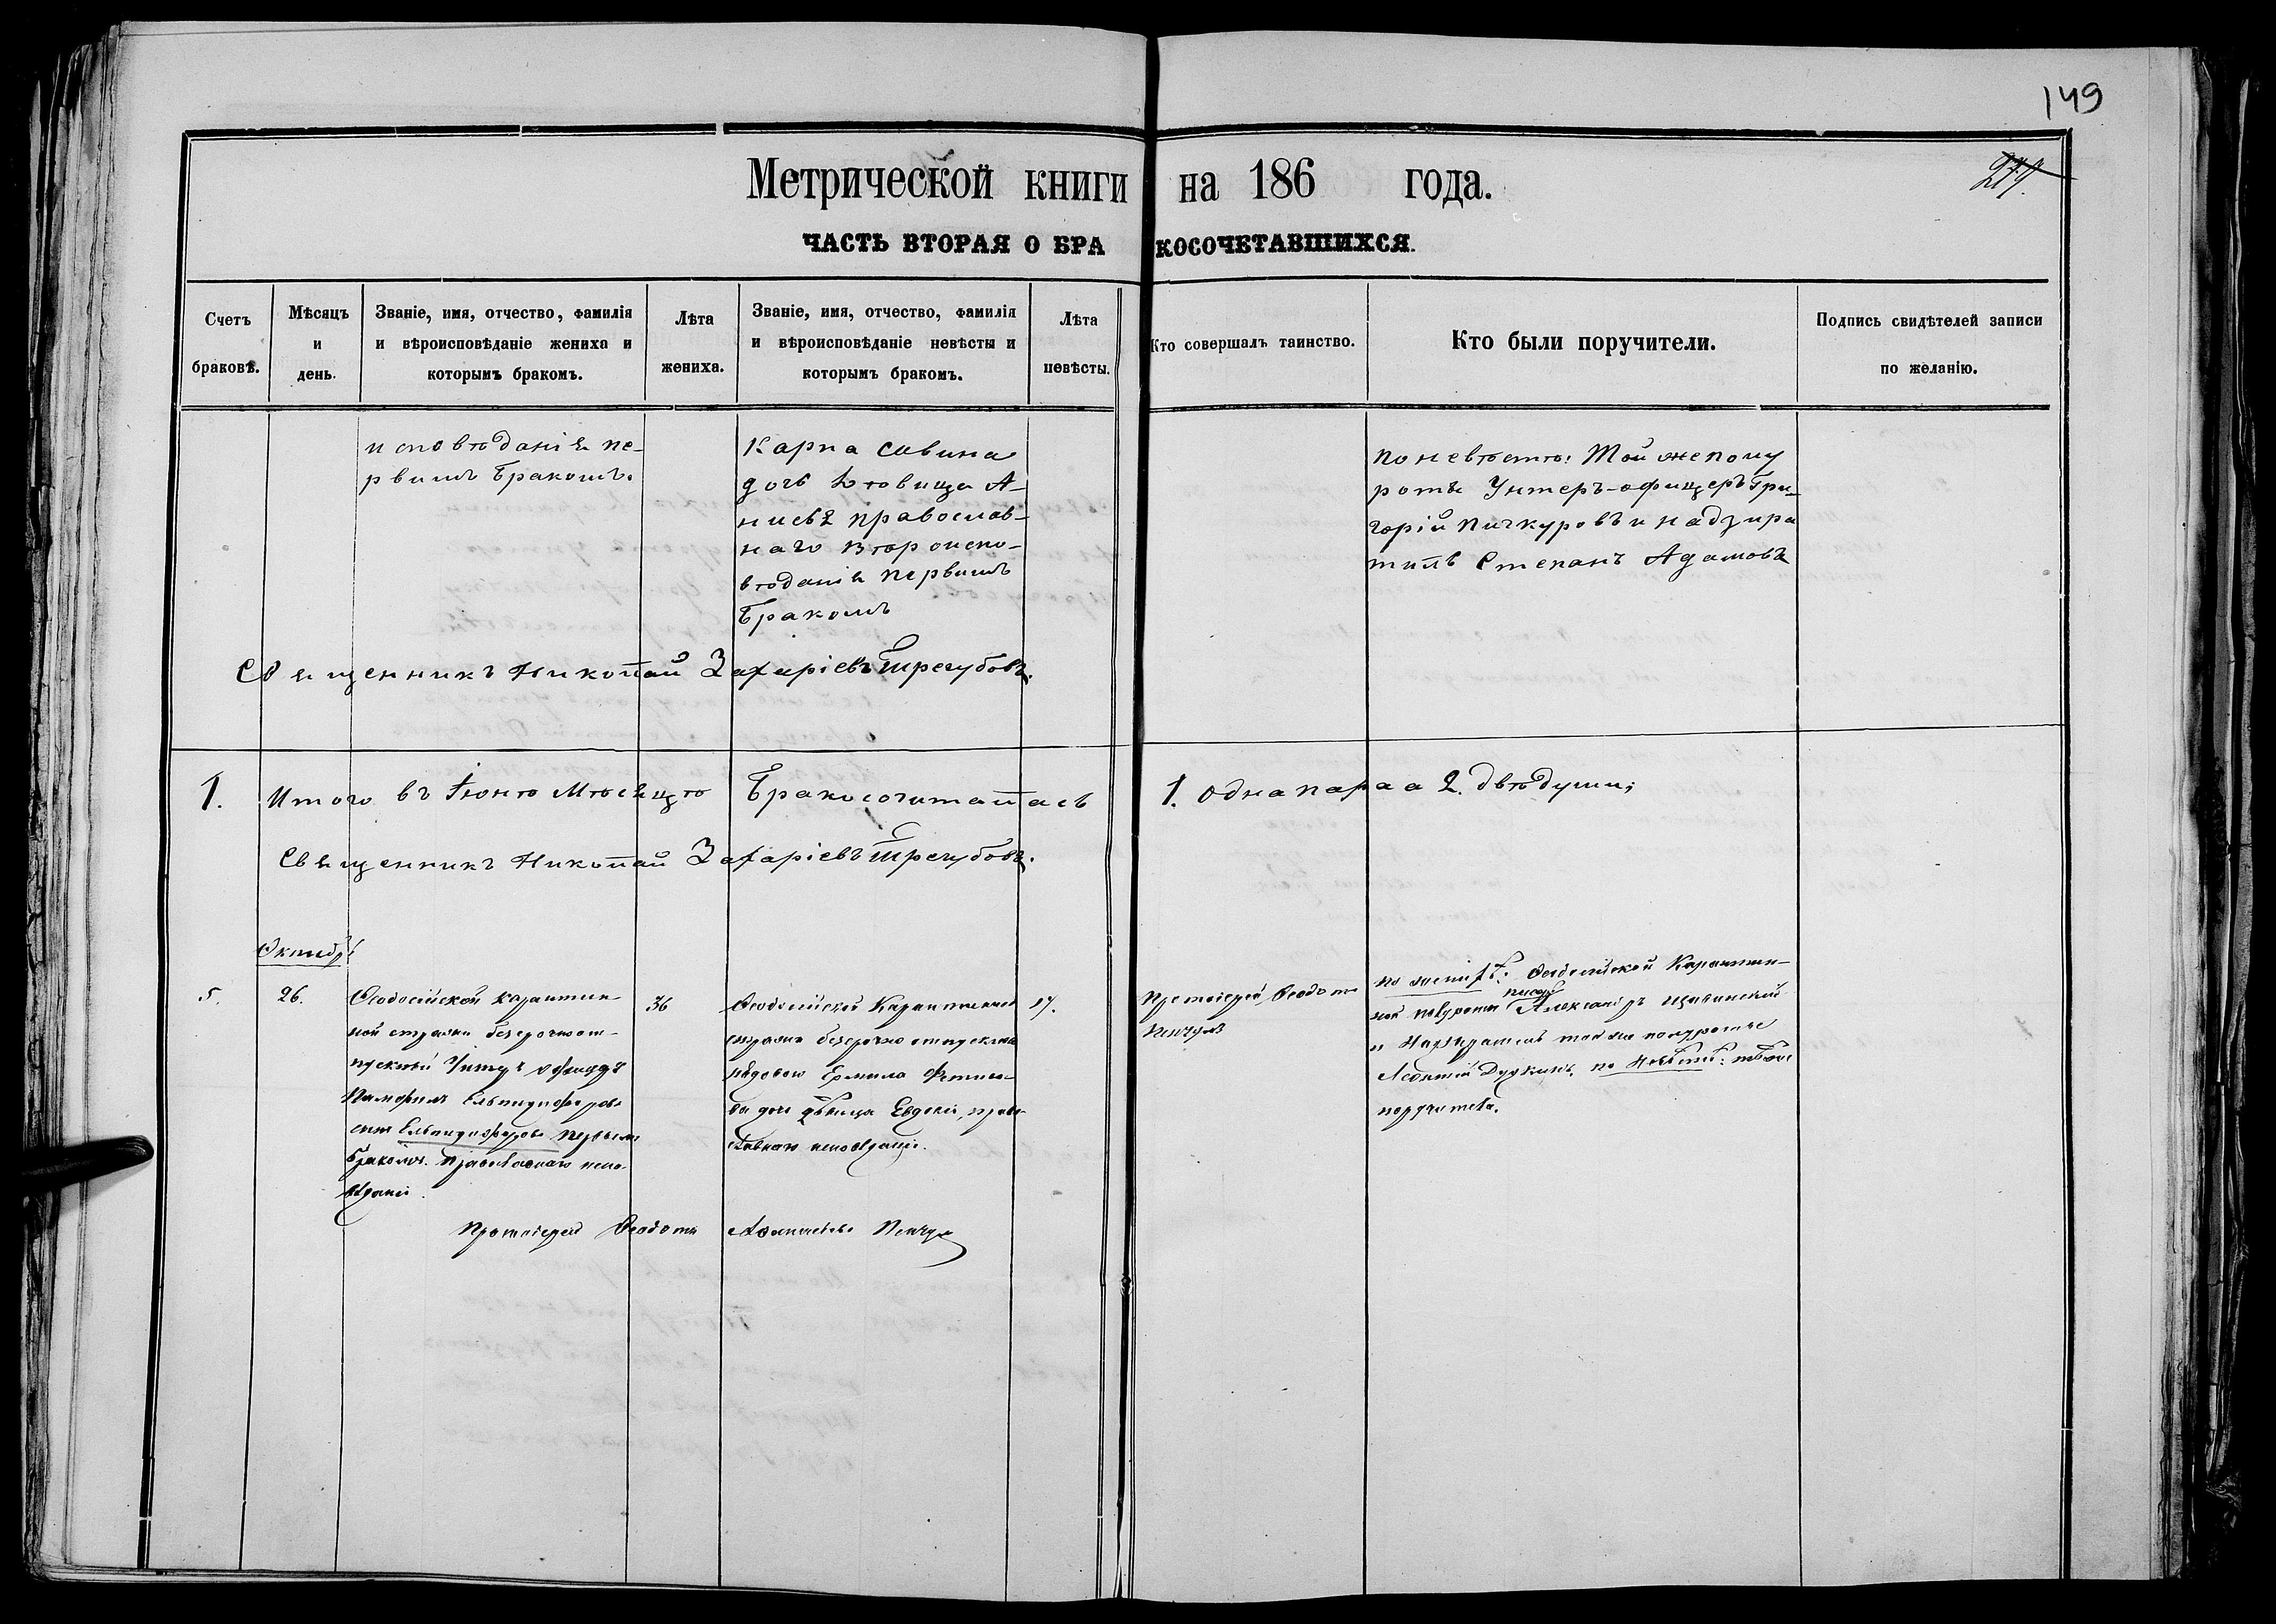 149
277.
Метрической книги на 186 года.
ЧАСТЬ ВТОРАЯ О БРАКОСОЧЕТАВШИХСЯ.
Счетъ браковъ.
Мѣсяцъ и день.
Званіе, имя, отчество, фамилія и вѣроисповѣданіе жениха и которымъ бракомъ.
Лѣта жениха.
Званіе, имя, отчество, фамилія и вѣроисповѣданіе невѣсты и которымъ бракомъ.
Лѣта невѣсты.
Кто совершалъ таинство.
Кто были поручители.
Подпись свидѣтелей записи по желанію.
исповѣданія пе-
рвымъ бракомъ.
Карпа Савина
дочь
православ-
наго вѣроиспо-
вѣданія первымъ
бракомъ
по невѣстѣ: Той же полу
роты Унтеръ-офицеръ Гри-
горій Пичкуровъ и надзира
тиль Степанъ Адамовъ
Священникъ Николай Захаріевъ Трегубовъ.
1. Итого въ Іюнѣ Мѣсяцѣ Бракосочиталась 1. одна пара а 2. двѣ души;
Священникъ Николай Захаріевъ Трегубовъ.
Октябрь
5.
26.
Ѳеодосійской карантин
ной стражи безсрочноот-
пускный Унтеръ офицеръ
Елпидифоровъ
сынъ Елпидифоровъ первымъ
бракомъ. православнаго испо-
вѣданія.
36
Ѳеодосійской Карантинной
стражи безсрочно отпускнаго
рядоваго Ермила
дочь дѣвица Евдокія, право-
славнаго исповѣданія.
17.
Протоіерей Ѳеодотъ
Пенчулъ
по жениху: Ѳеодосійской Карантин-
писарь
ной полуроты Александръ
и Надзиратель той же полуроты
Леонтій Дудкинъ, по невѣстѣ: тѣ же
поручители.
Протоіерей Ѳеодотъ Аѳанасьевъ